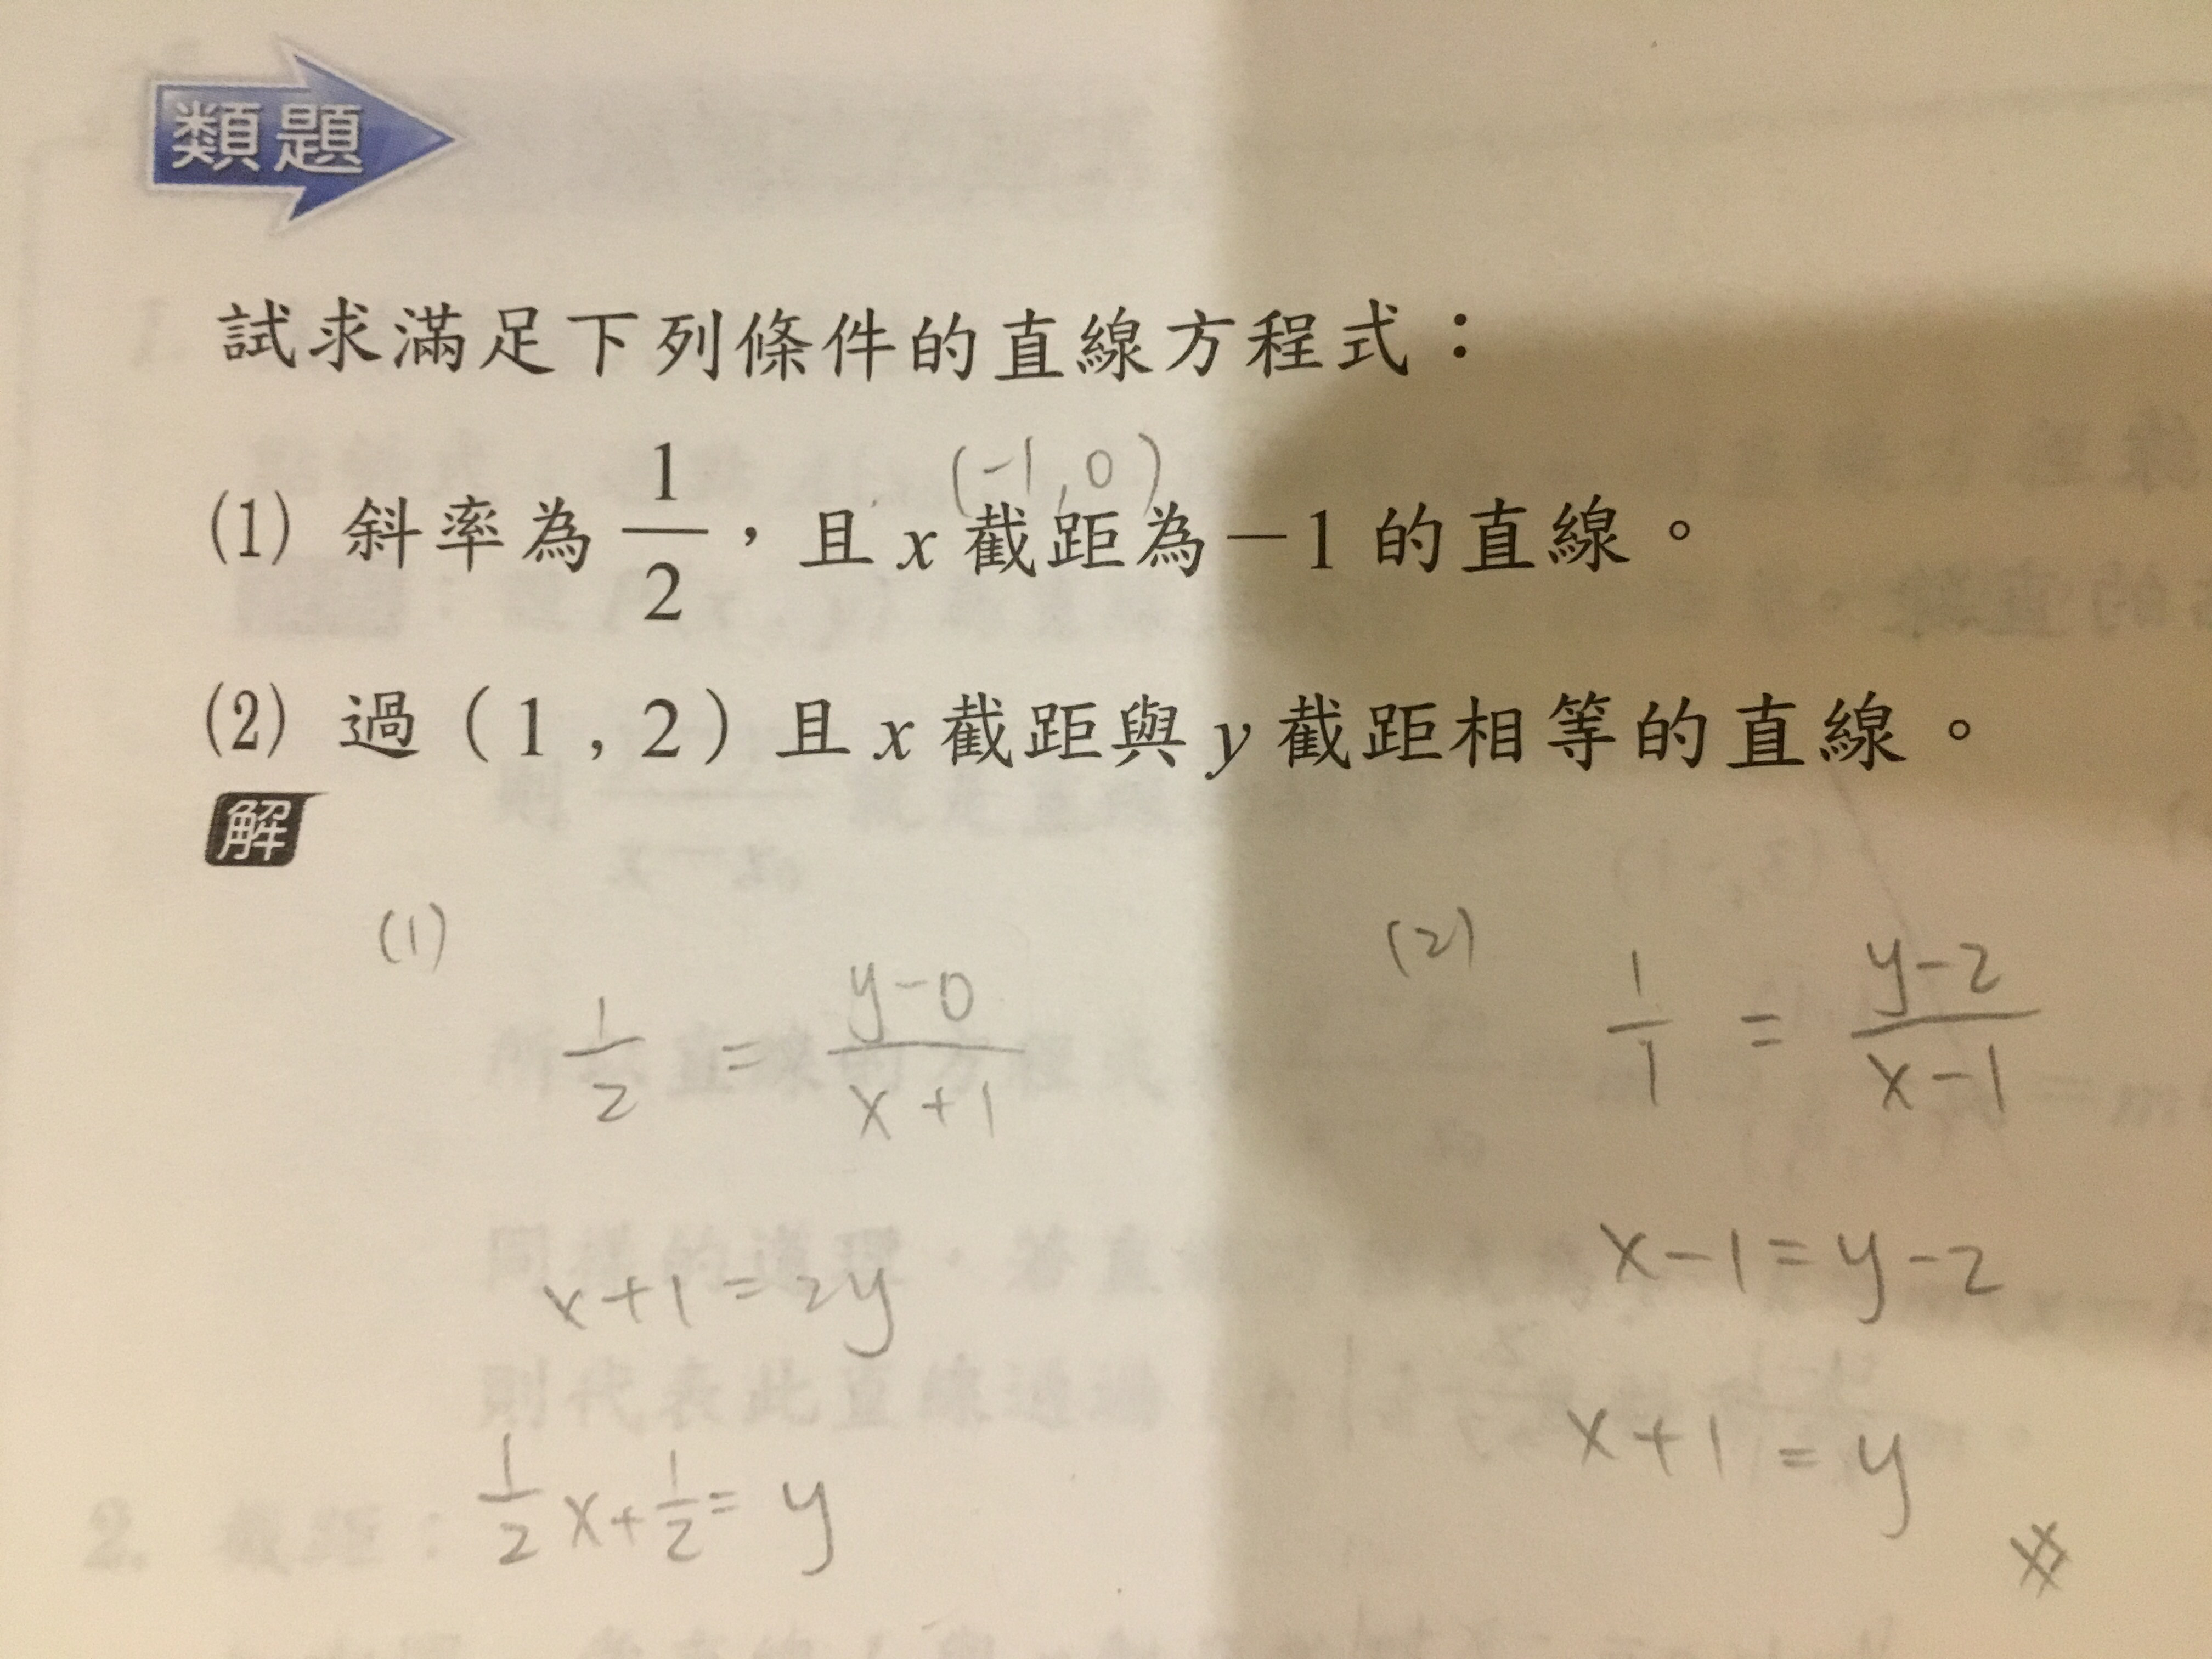 類題
試求滿足下列條件的直線方程式：
(-1, 0)
(1) 斜率為 1/2，且 x 截距為 −1 的直線。
(2) 過 (1 , 2) 且 x 截距與 y 截距相等的直線。
解
(1) 1/2 = y-0/x+1
x+1=2y
1/2 x+1/2= y
(2) 1/1 = y-2/x-1
x-1=y-2
x+1=y